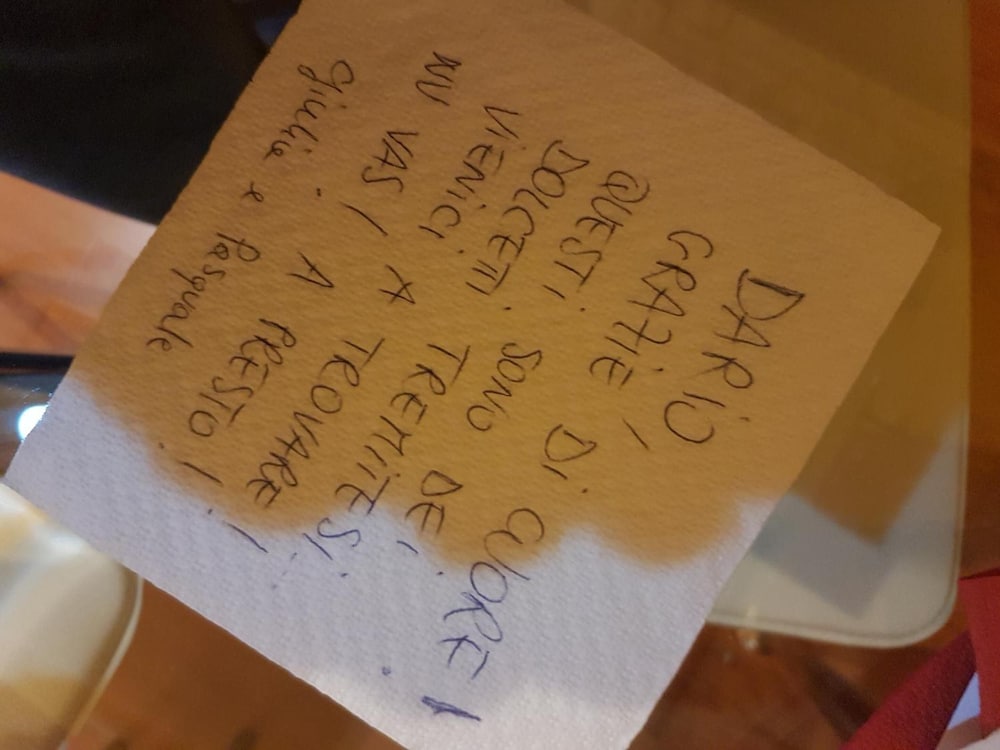 DARIO
GRAZIE, DI CUORE!
QUESTI
DOLCETTI SONO DE,
VIENICI TREMITESI
NU VAS! A TROVARE!
A PRESTO!
Giulia e Pasquale